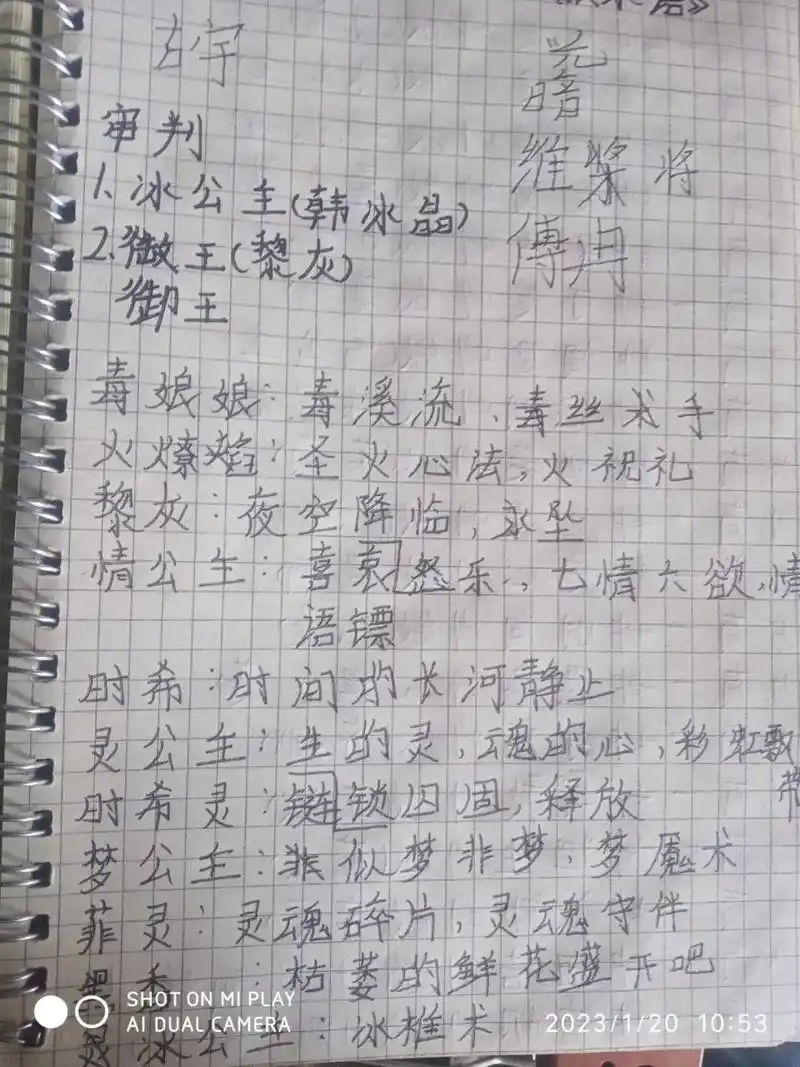 语》
古宇
暗
审判
维 桨 将
1. 冰公主(韩冰晶)
傅冉
2. 王(黎灰)
御王
毒娘娘：毒溪流、毒丝术手
火燎焰：圣火心法,火祝礼
黎灰：夜空降临,永坠
情公主：喜哀怒乐.,七情六欲,情
语镖
时希：时间的长河静止
灵公主：生的灵,魂的心,彩虹飘
带
时希灵：链锁囚固,释放
梦公主：非似梦非梦、梦魇术
菲灵：灵魂碎片,灵魂守伴
黑香：枯萎的鲜花盛开吧
冰公主：冰椎术
SHOT ON MI PLAY
AI DUAL CAMERA
2023/1/20 10:53